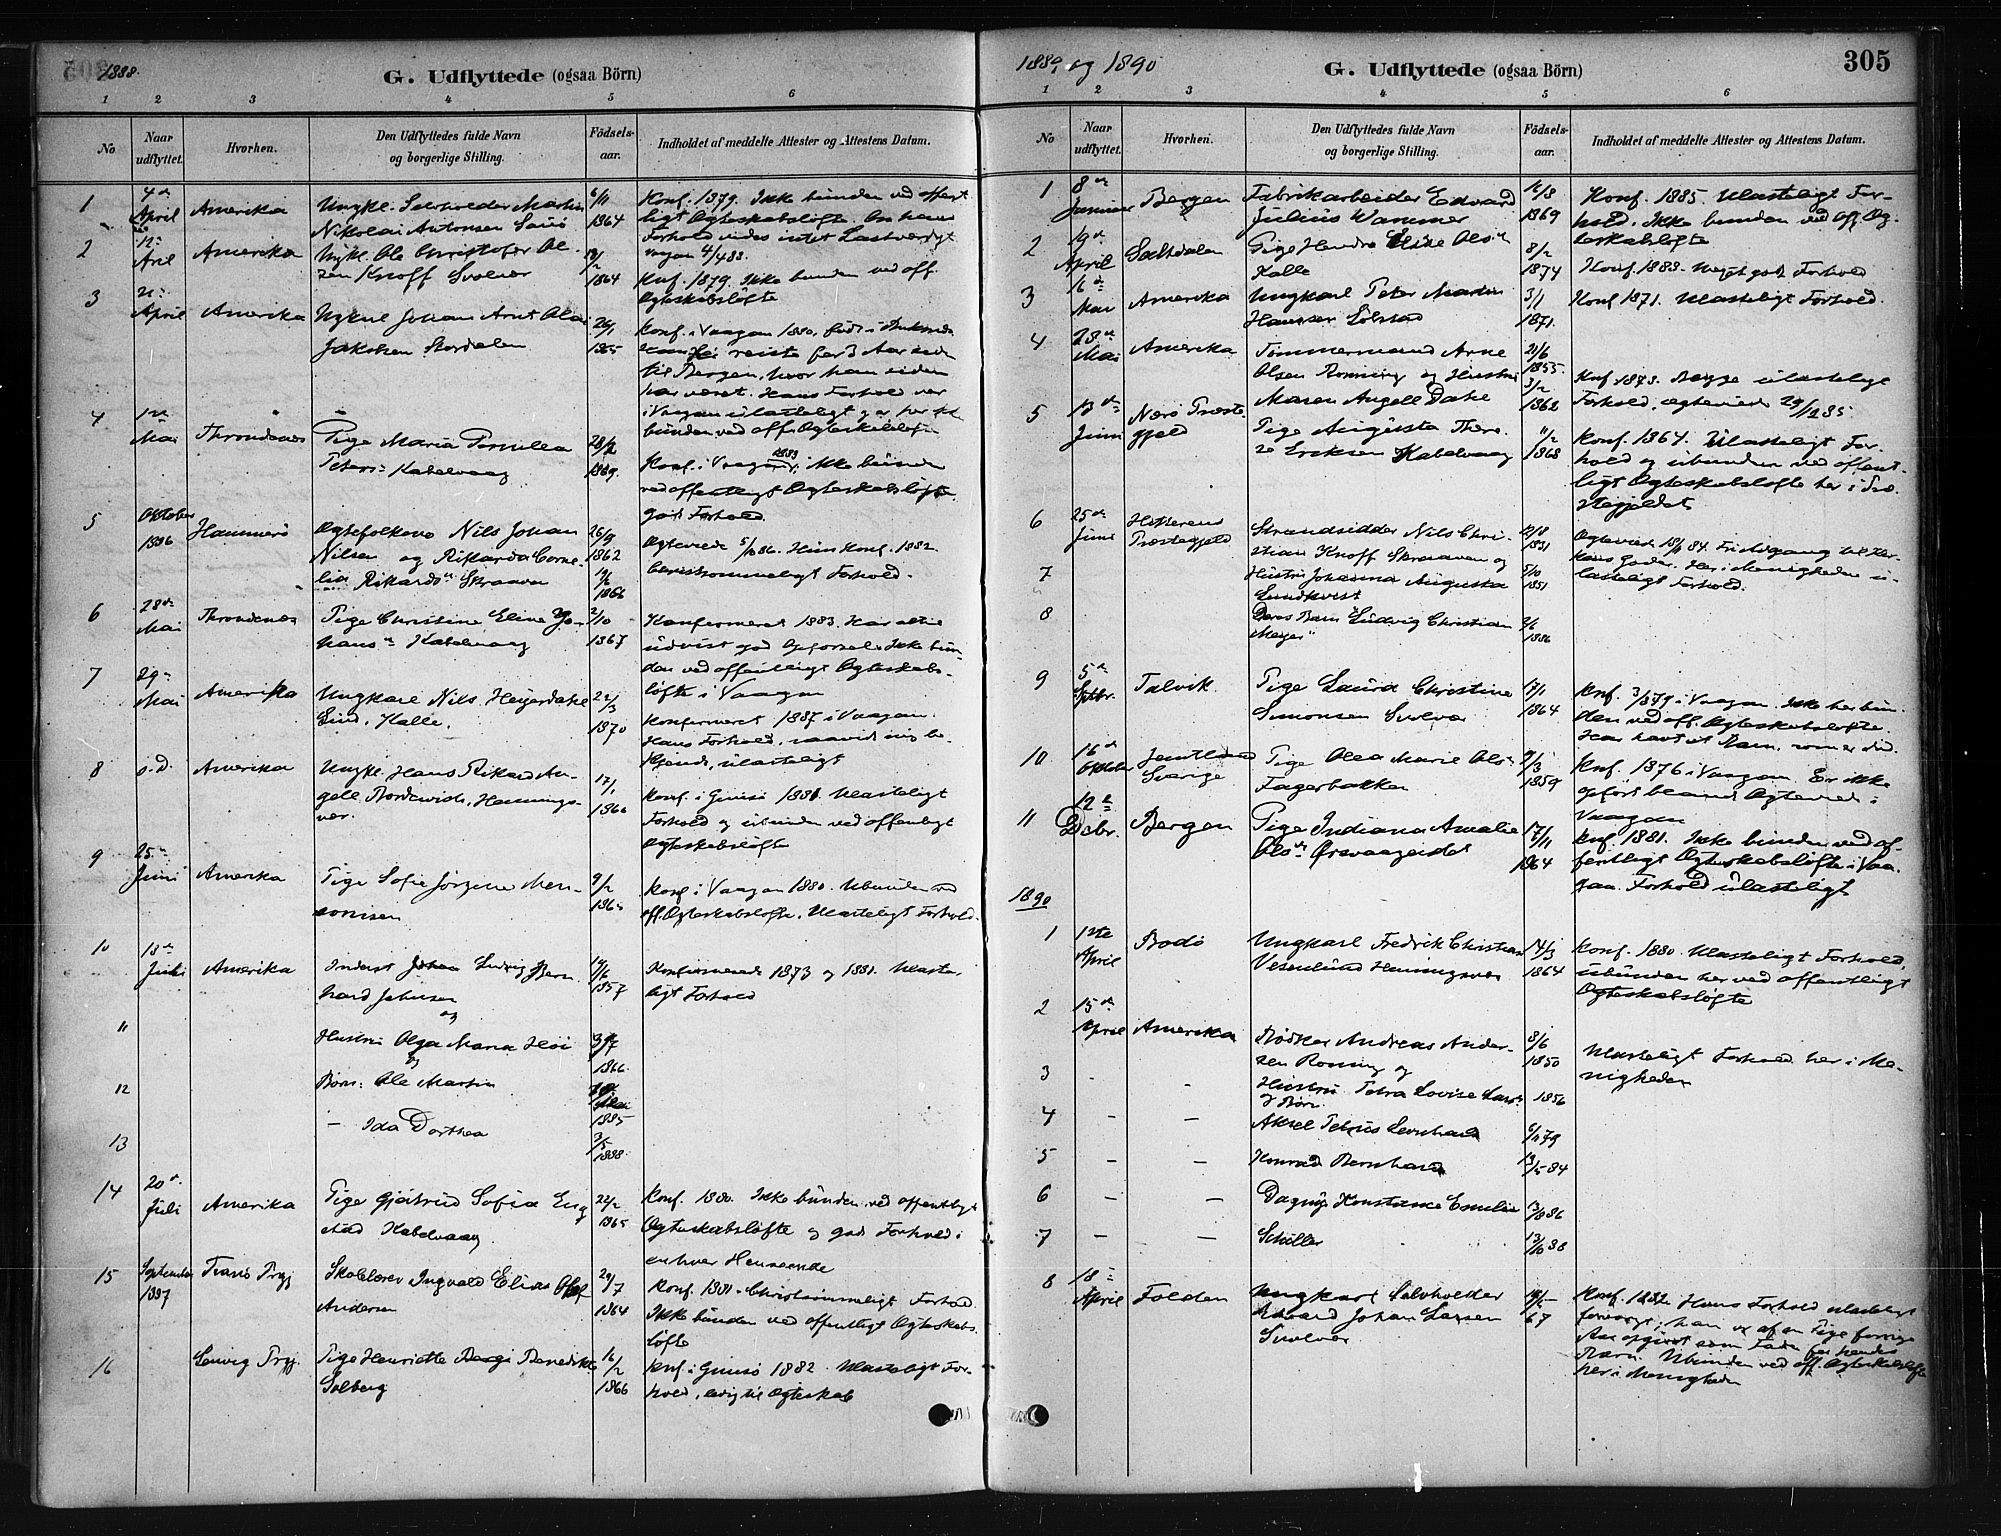 1888.
G. Udflyttede (ogsaa Börn)
1 2 3 4 5 6
No
Naar udflyttet.
Hvorhen.
Den Udflyttedes fulde Navn
og borgerlige Stilling.
Födsels-
aar.
Indholdet af meddelte Attester og Attestens Datum.
1 4de April Amerika
Ungkl. Selvholder Martin
Nikolai Antonsen
6/11 1864
Konf. 1879. Ikke bunden ved offent
ligt Ægteskabsløfte. Om hans
Forhold vides intet Lastværdigt
Vaagan 4/4 88.
2 12te Amerika
Ungkl. Ole Christofer Ol-
sen Knoff Svolvær
1864
Konf. 1879. Ikke bunden ved off.
Ægteskabsløfte
3 April Amerika
Ungkarl Johan Arnt Olai
Jakobsen Stordalen
1865
Konf. i Vaagan 1880, født i
reiste for 3 Aar siden
til Bergen, hvor han siden
har været. Hans Forhold var
i Vaagan ulasteligt
bunden ved off. Ægteskabsløfte
4 Mai Throndenes
Pige Maria Pernilla
Peters: Kabelvaag
1869.
Konf. i Vaagan 1883, ikke bunden
ved offentligt Ægteskabsløfte
godt Forhold.
5 Oktober 1886 Hammerö
Ægtefolkene Nils Johan
Nilsen og Rikarda Corne-
lia Rikardsn Skraaven
26/9 1862
1866
Ægteviede 5/10 86. Hun Konf. 1882.
Forhold.
6 28de Mai Throndenes
Pige Christine Eline Jo-
hansn Kabelvaag
2/10 1867
Konfirmeret 1883. Har altid
udvist god Opførsel. Ikke bun-
den ved offentligt Ægteskabs-
løfte i Vaagan
7 29de Mai Amerika
Ungkarl Nils Heyerdahl
Lind, Kalle.
22/3 1870
Konfirmeret 1887 i Vaagan.
Hans Forhold, saavidt mig be-
kjendt, ulasteligt
8 s.d. Amerika
Ungkl. Hans Rikard An-
gell Bordewick, Hennings-
vær.
17/1 1866
Konf. i Gimsö 1881. Ulasteligt
Forhold og ubunden ved offentligt
Ægteskabsløfte
9 25de Juni Amerika
Pige Sofie Jörgine Mon-
sonisen
9/2
Konf. i Vaagan 1880. Ubunden ved
off. Ægteskabsløfte. Ulasteligt Forhold.
10 18de Juli Amerika
Inderst Johan Ludvig Bern
hard Johnsen
og
1857
Konfirmerede 1873 og 1881. Ulaste-
ligt Forhold
11
Hustru Olga Maria Höi
og
1866.
12
Børn: Ole Martin
1885
13
— Ida Dorthea
3/5 1888.
14 20de Juli Amerika
Pige Gjertrud Sofia Eng
stad Kabelvaag
22/2 1865
Konf. 1880. Ikke bunden ved offentligt
Ægteskabsløfte og godt Forhold i
enhver Henseende
15 September 1887 Tranö Prgj
Skolelærer Ingvald Elias Olaf
Andersen
29/7 1864
Konf. 1880. Christsømmeligt Forhold
Ikke bunden ved offentligt Ægteskabs-
løfte
16 Lenvig Prgj.
Pige Henriette Bergi Benedikte
Solberg
16/2 1866
Konf. i Gimsö 1882. Ulasteligt For-
hold, ledig til Ægteskab
1889 og 1890
G. Udflyttede (ogsaa Börn)
305
1 2 3 4 5 6
No
Naar udflyttet.
Hvorhen.
Den Udflyttedes fulde Navn
og borgerlige Stilling.
Födsels-
aar.
Indholdet af meddelte Attester og Attestens Datum.
1 8de Januar Bergen
Fabrikarbeider Edvard
Julius Wammer
1869
Konf. 1885. Ulasteligt For-
hold. Ikke bunden ved off. Æg-
teskabsløfte
2 19de April Saltdalen
Pige Elise Olsn
Kalle
8/2 1874
Konf. 1888. Meget godt Forhold
3 16de Mai Amerika
Ungkarl Peter Martin
Hansen
3/1 1871.
Konf 1871. Ulasteligt Forhold.
4 28de Mai Amerika
Tømmermand Arne
Olsen Rönning og Hustru
Maren Angell Dahl
21/6 1855
3/2 1862
Konf. 1873. Begge ulastelige
Forhold, ægteviede
5 13de Juni Nærö Præste-
gjeld
Pige Augusta There-
se Eriksen Kabelvaag
11/2 1868
Konf. 1864. Ulasteligt For-
hold og ubunden ved offent-
ligt Ægteskabsløfte her i Præ-
stegjeldet
6 25de Juni Hitterens
Præstegjeld
Strandsidder Nils Chri-
stian Knoff Skraaven og
1831
Ægteviede 84. Fri Adgang til Her-
rens Goder. Her i Menigheden u-
lasteligt Forhold.
7
Hustru Johanna Augusta
Lundkvist
5/10 1851
8
Deres Barn Ludvig Christian
Meyer
1886
9 5te Septbr. Talvik
Pige Laura Christine
Simonsen Svolvær
17/1 1864
Konf. 3/8 79 i Vaagan. Ikke her bun-
den ved off. Ægteskabsløfte.
Har havt et Barn, som er død.
10 16de Oktober Jemtland
Sverige
Pige Olea Marie Ols-
Fagerbakken
9/3 1859
Konf. 1876 i Vaagan. Er ikke
opført blandt Ægteviede i
Vaagan
11 12te Decbr. Bergen
Pige Indiana Amalie
Olsn Örsvaageidet
17/11 1864
Konf. 1881. Ikke bunden ved of-
fentligt Ægteskabsløfte i Vaa-
gan. Forhold ulasteligt
1890
1 12te April Bodö
Ungkarl Fredrik Christian
Vesenlund Henningsvær
14/3 1864
Konf. 1880. Ulasteligt Forhold,
ubunden her ved offentligt
Ægteskabsløfte
2 15de April Amerika
Bødker Andreas Ander-
sen Rönning og
8/6 1850
Ulasteligt Forhold her i Me-
nigheden
3 - -
Hustru Petra Lovise Larsn
og Børn
1856
4 — —
Aksel Petrus Leonhard
79
5 — —
Konrad Bernhard
84
6 — —
Dagny Konstanse Emelie
13/8 86
7 — —
Schiller
13/10 88
8 18de April Folden
Ungkarl Selvholder
Edvard Johan Larsen
Svolvær
67
Konf. 1882. Hans Forhold ulasteligt
forøvrigt; han er af en Pige forrige
Aar opgivet som Fader for hendes
Barn. Ubunden ved off. Ægteskabsløfte
her i Menigheden